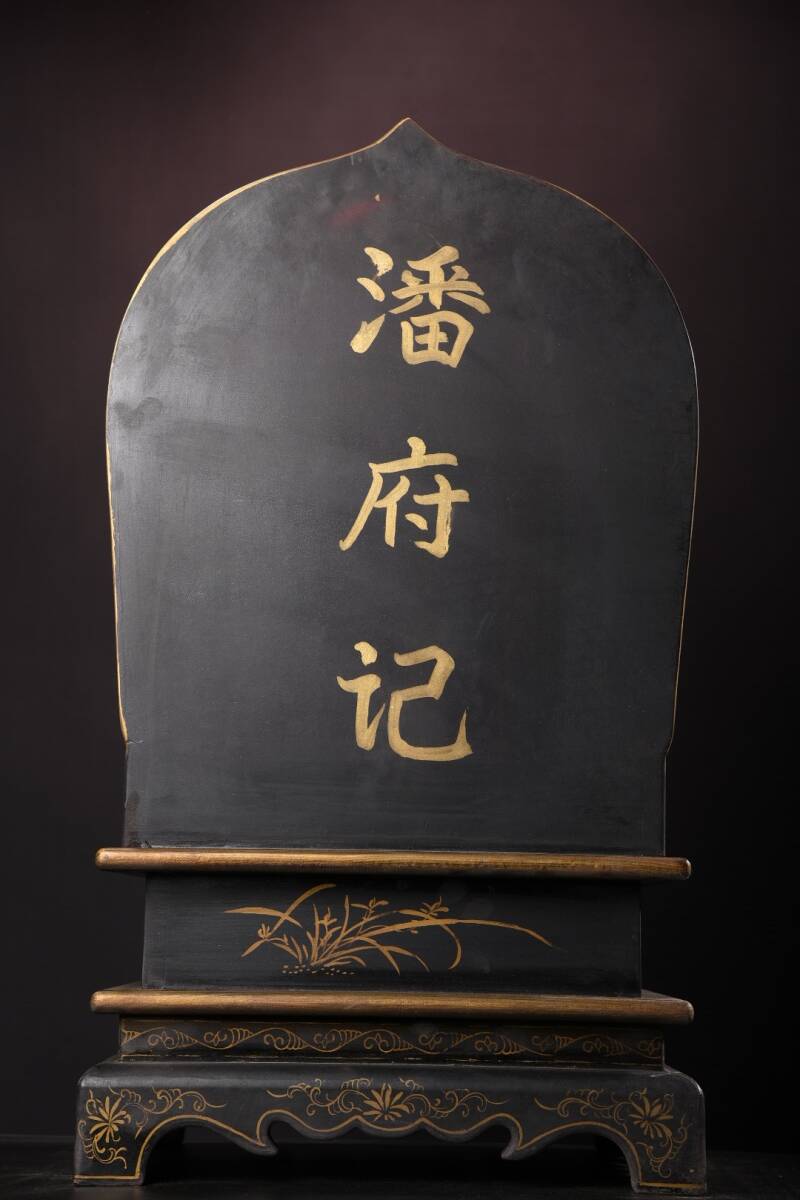 潘府记